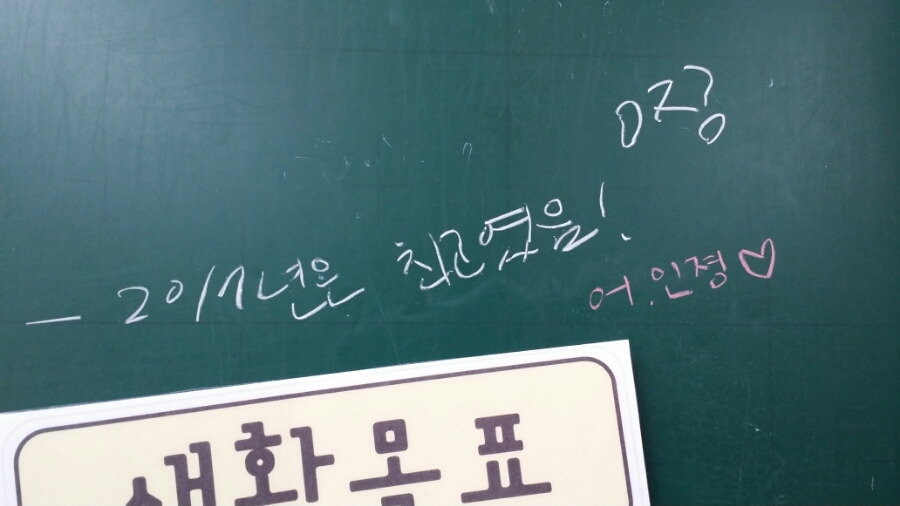 ㅇㅈ?
- 2017년은 최고였음!
어.인정♡
생활목표